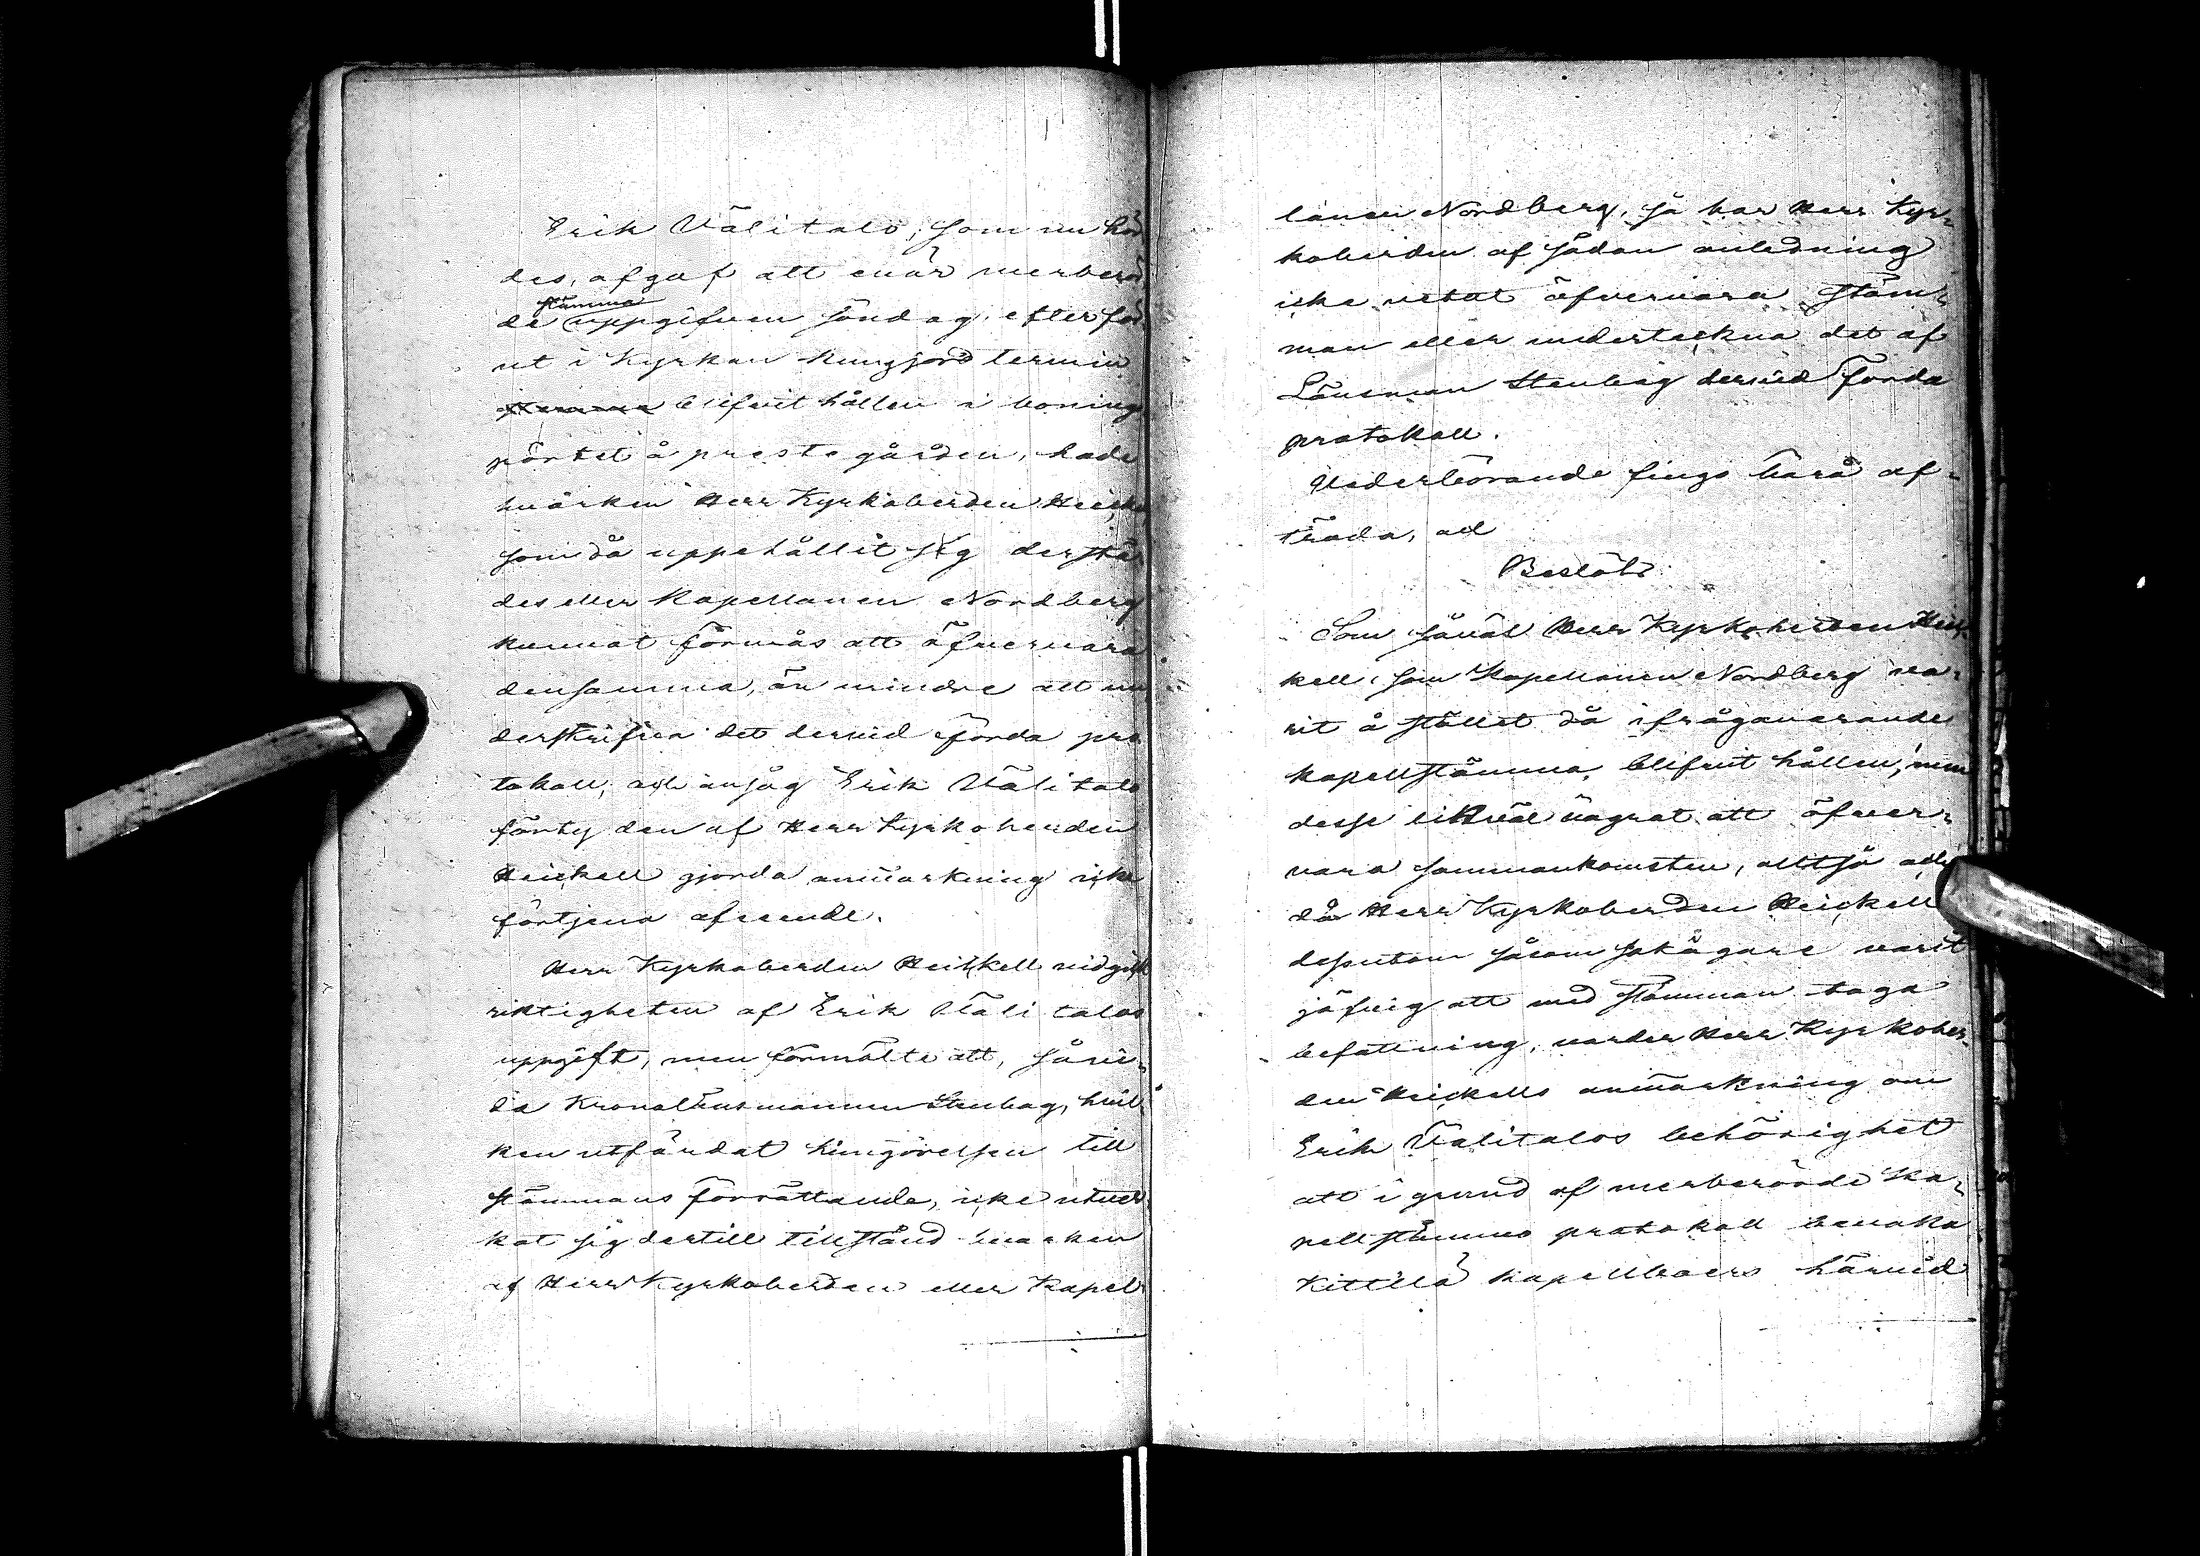 Erik Välitalo, som nu hör
des, afgaf att enär merberör
de stämma uppgifven söndag, efter för
ut i Kyrkan kungjord termin
blifvit hållen i boning
pörtet å prestegården, hade
hvarken Herr Kyrkoherden Heicke
som då uppehållit sig derstä
des eller Kapellanen Nordberg
kunnat förmås att öfvervara
densamma, än mindre att un
derskrifva det dervid förda pro
tokoll, och ansåg Erik Välitalo
förty den af Herr Kyrkoherden
Heickell gjorda anmärkning icke
förtjena afseende.
Herr Kyrkoherden Heickell vidgick
riktigheten af Erik Välitalos
uppgift, men förmälte att, såvi-
da Kronolänsmannen Stenbäg, hvil-
ken utfärdat kungörelsen till
stämmans förrättande, icke utver-
kat sig dertill tillstånd hvarken
af Herr Kyrkoherden eller Kapel-
lanen Nordberg, så har Herr Kyr-
koherden af sådan anledning
icke velat öfvervara stäm-
man eller underteckna det af
Länsman Stenbäg dervid förda
protokoll.
Vederbörande fingo härå af-
träda, och
Beslöts:
Som såväl Herr Kyrkoherden Heic-
kell, som Kapellanen Nordberg va-
rit å stället då ifrågavarande
kapellstämma, blifvit hållen, men
desse likväl vägrat att öfver-
vara sammankomsten, alltså och
då Herr Kyrkoherden Heickell
dessutom såsom sakägare varit
jäfvig att med stämman taga
befattning, varder Herr Kyrkoher-
den Heickells anmärkning om
Erik Välitalos behörighet
att i grund af merberörde Ka-
pellstämmo protokoll bevaka
Kittilä kapellboers härvid